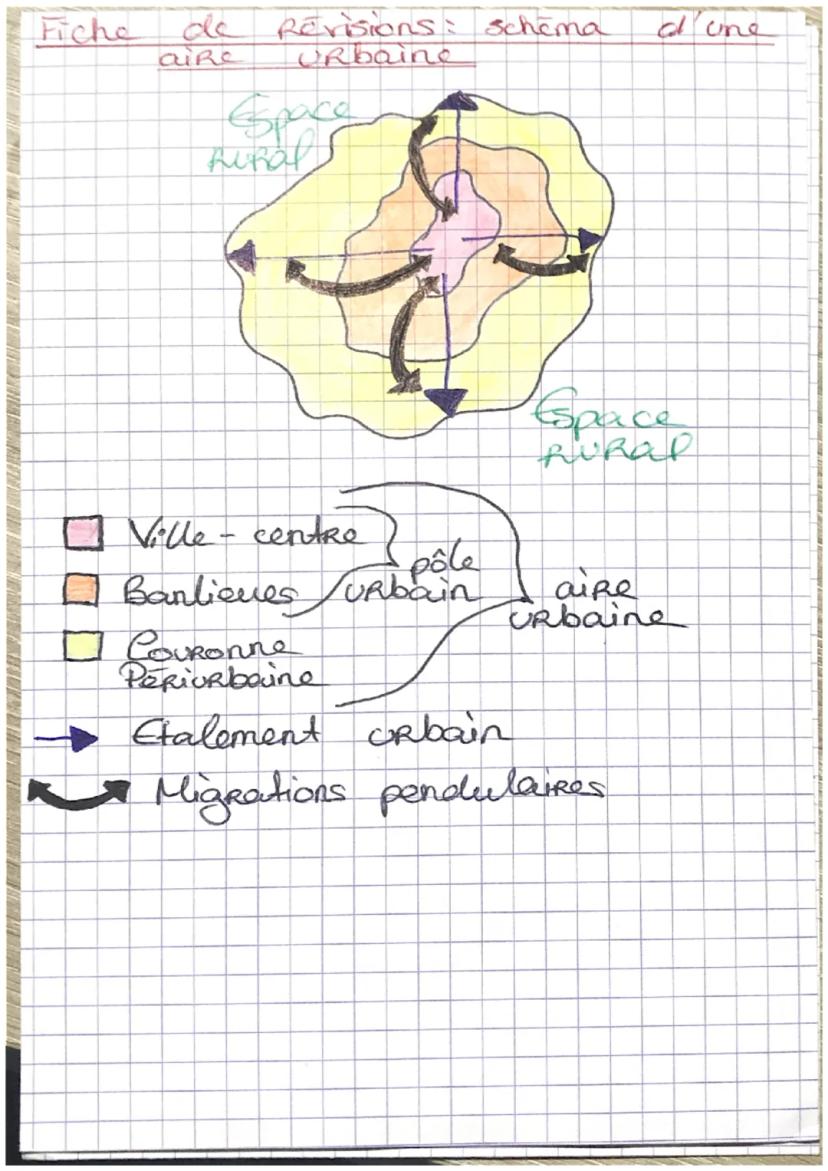 Fiche de révisions : schéma d'une
aire urbaine
Espace
rural
Espace
rural
Ville-centre
Banlieues
pôle
urbain
aire
urbaine
Couronne
Périurbaine
Etalement urbain
Migrations pendulaires